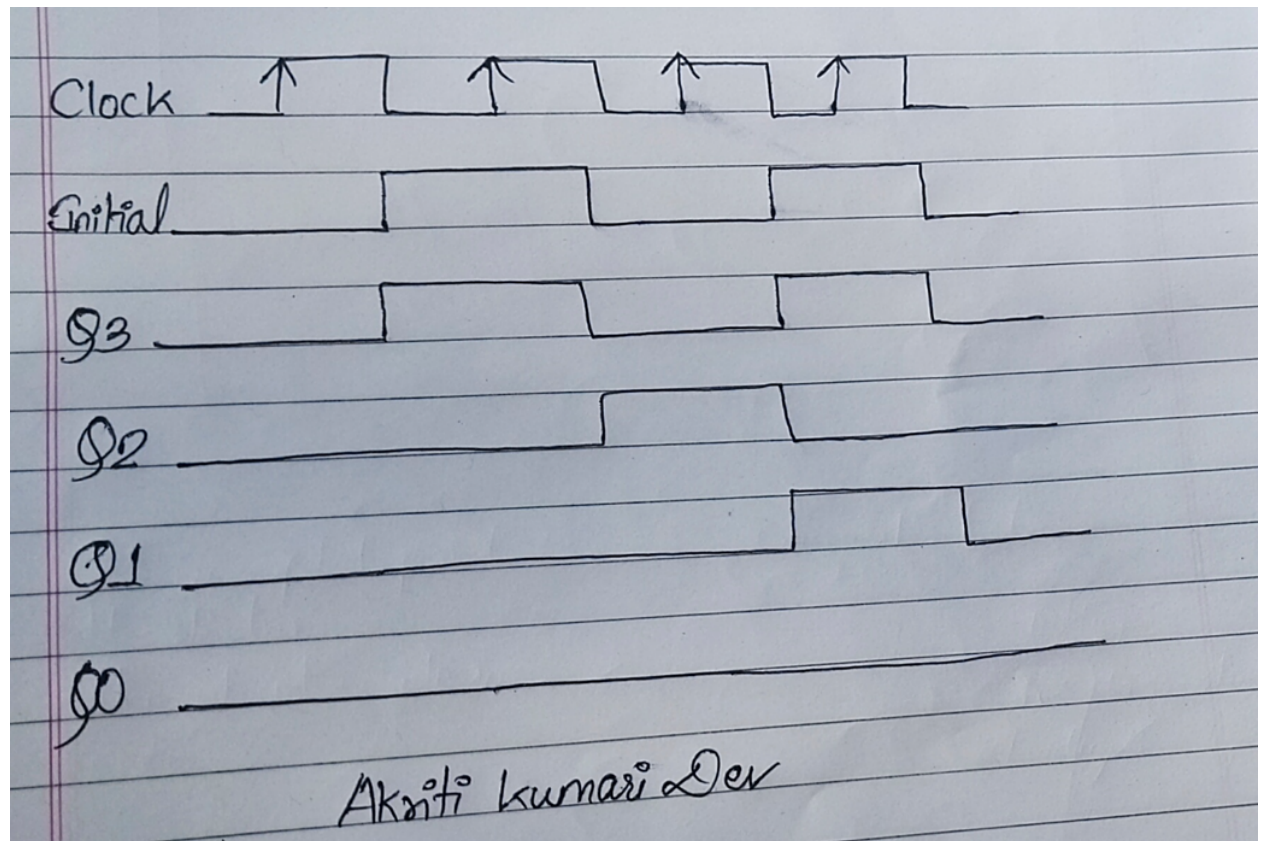 Clock
Initial
Q3
Q2
Q1
Q0
Akriti kumari Dev